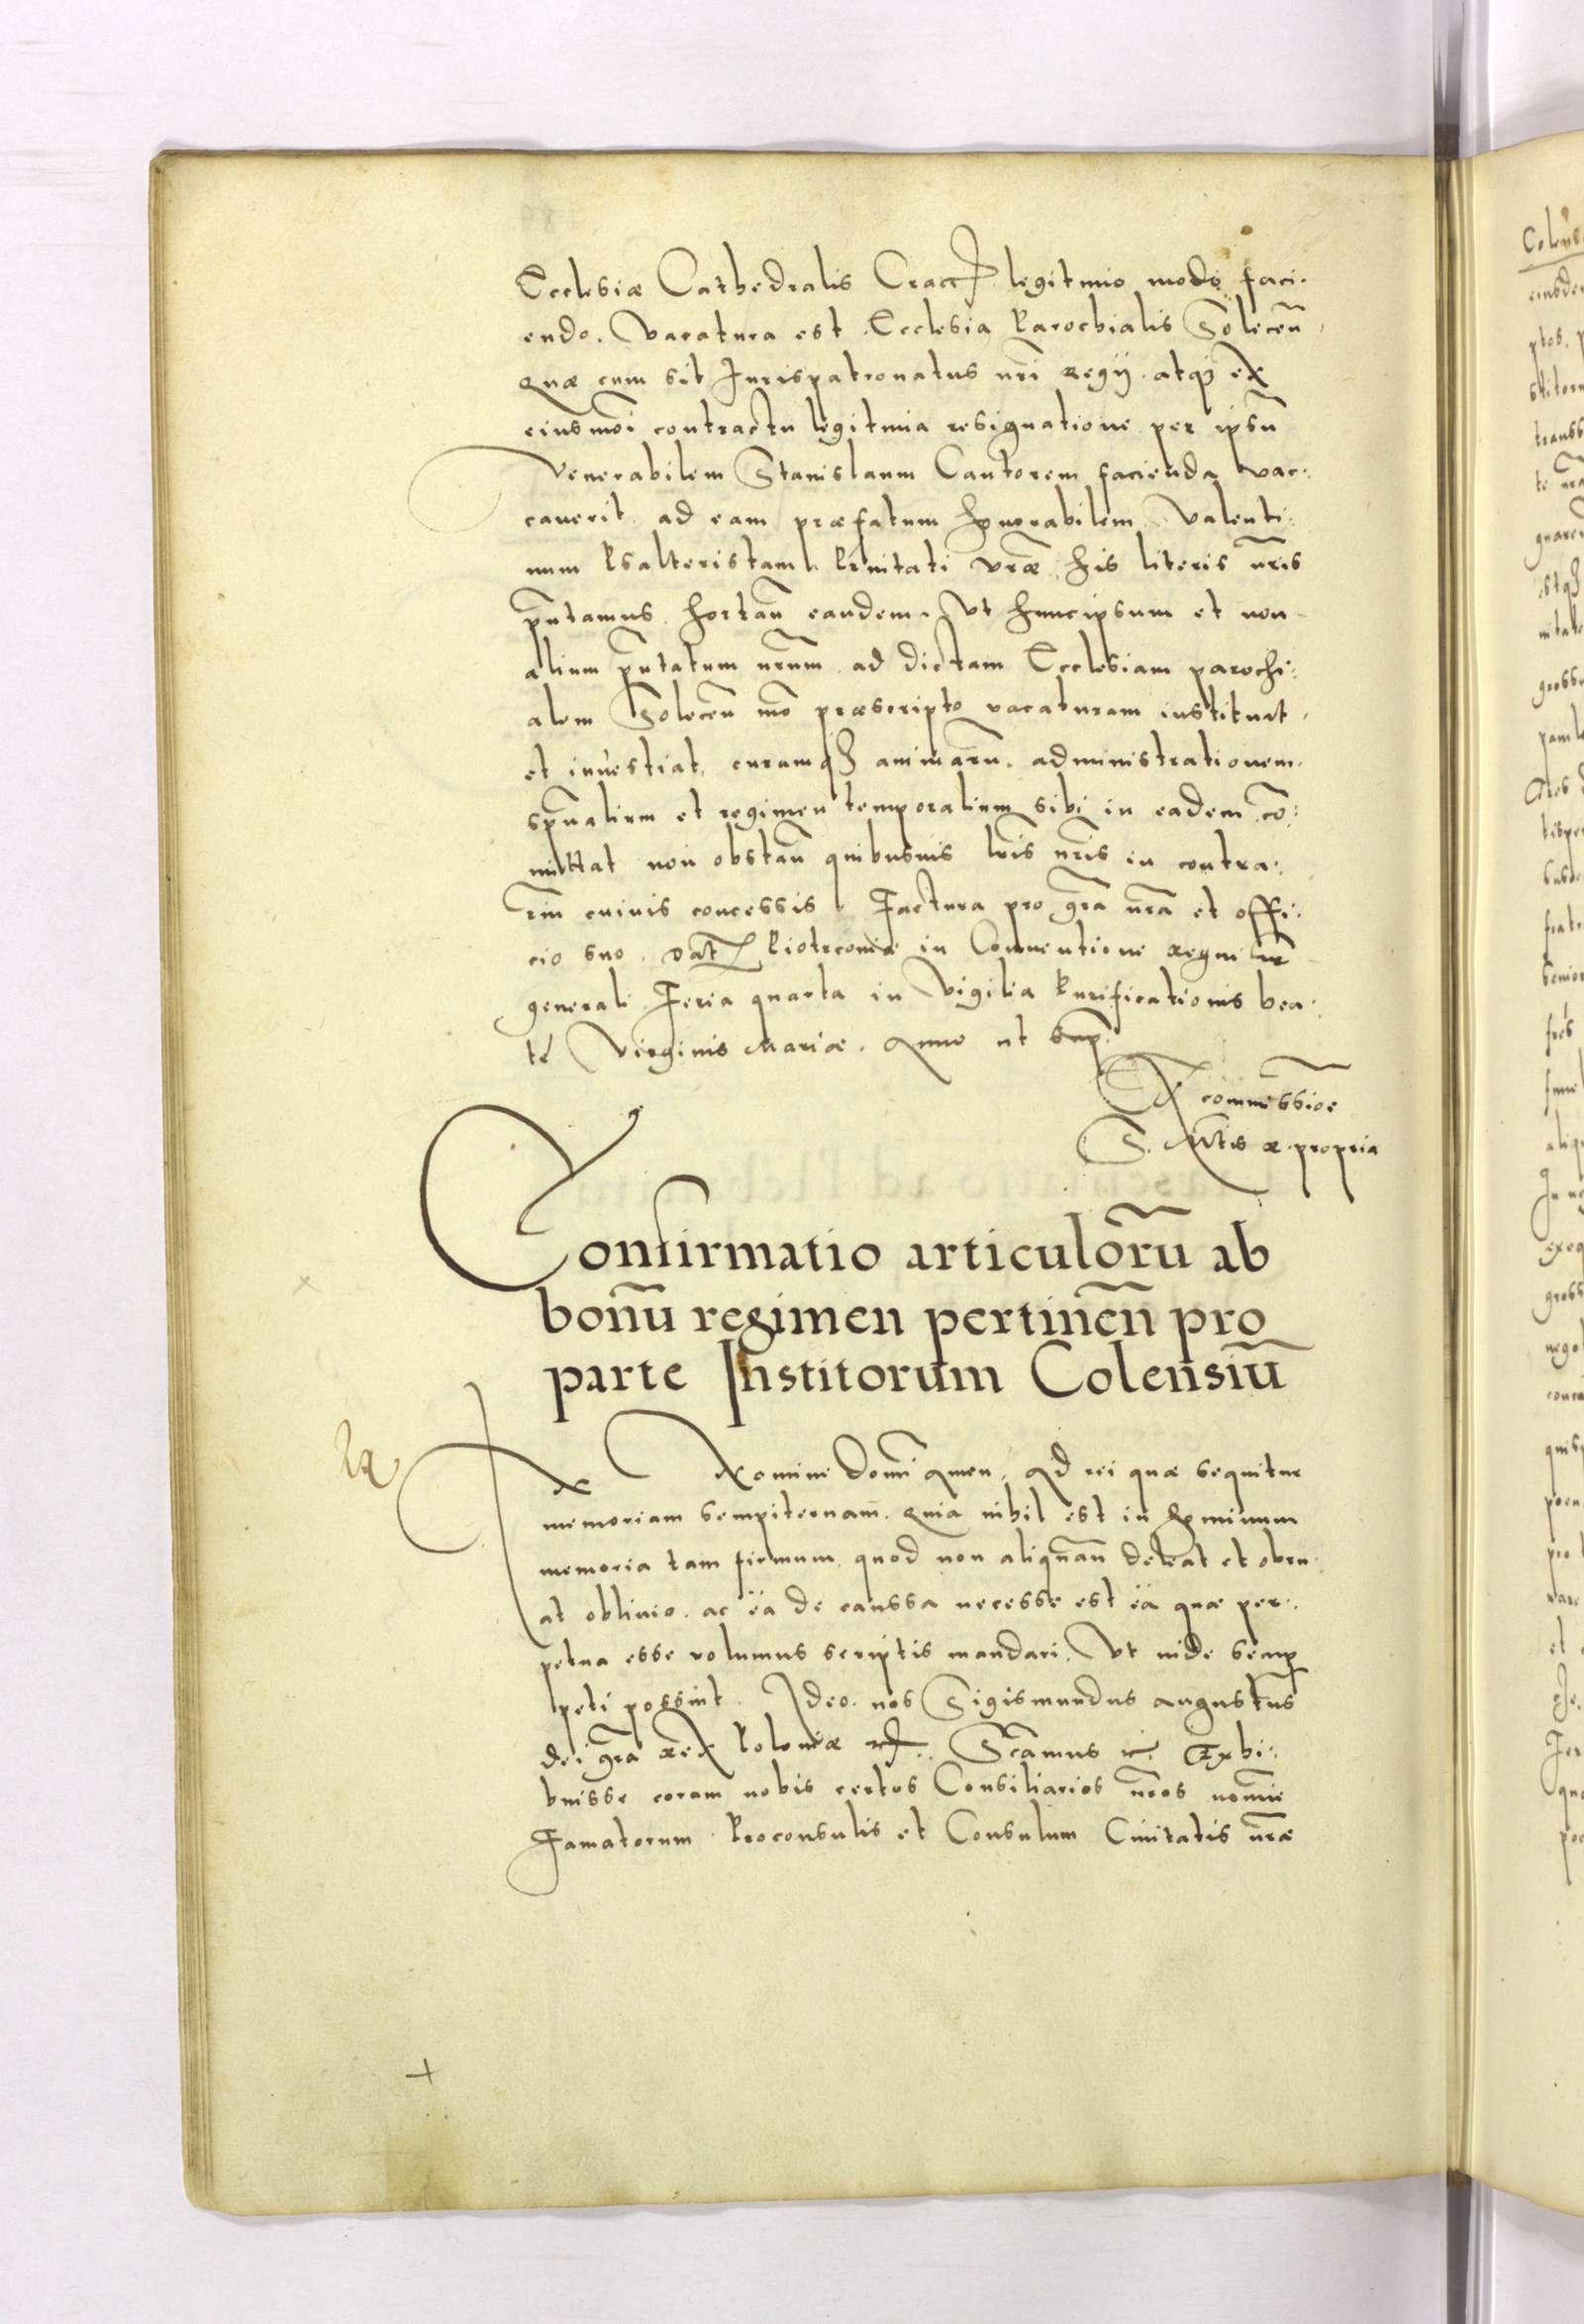 Ecclesiæ Cathedralis Cracc legitimo modo faci-
endo. vacatura est Ecclesia Parochialis Soleceñ
Quæ cum sit Jurispatronatus nr̃i Regij. atq3 ex
eiusmoi contractu legitimia resignatione per ipsũ
Venerabilem Stanislaum Cantorem facienda vac-
cauerit. ad eam præfatum honorabilem Valenti-
num Psalteristam Prnitati vræ. his literis nr̃is
pñtamus. hortañ eandem. Vt huncipsum et non
alium pñtatum nr̃um ad dictam Ecclesiam parochi-
alem Soleceñ mõ præscripto vacaturam instituat.
et inuestiat, curamqʒ animarũ. administrationem
spũalium et regimen temporalium sibi in eadem cõ-
mittat non obstañ quibusuis lr̃is nr̃is in contra-
riũ cuiuis concessis. Factura pro gr̃a nr̃a et offi-
cio suo. Dat Piotrconiæ in Conuentione Regni
generali Feria quarta in Vigilia Purificationis bea-
tæ Virginis Mariæ. Anno ut sup.
Ex commissioe
S. Mtis R. propria
Confirmatio articulorũ ab
bonũ regimen pertineñ pro
parte Institorum Colensiũ
In Nomine Domĩ Amen. Ad rei quæ sequitur
memoriam sempiternam. Quia nihil est in hominum
memoria tam firmum quod non aliquañ deleat et obru-
at obliuio. ac ëa de caussa necesse est ëa quæ per-
petua esse volumus scriptis mandari. Vt inde semp
peti possint. Ideo nos Sigismundus Augustus
dei gr̃a Rex Poloniæ etc. Scamus etc. Exhi-
buisse coram nobis certos Consiliarios nr̃os nomie
Famatorum Proconsulis et Consulum Ciuitatis nr̃æ